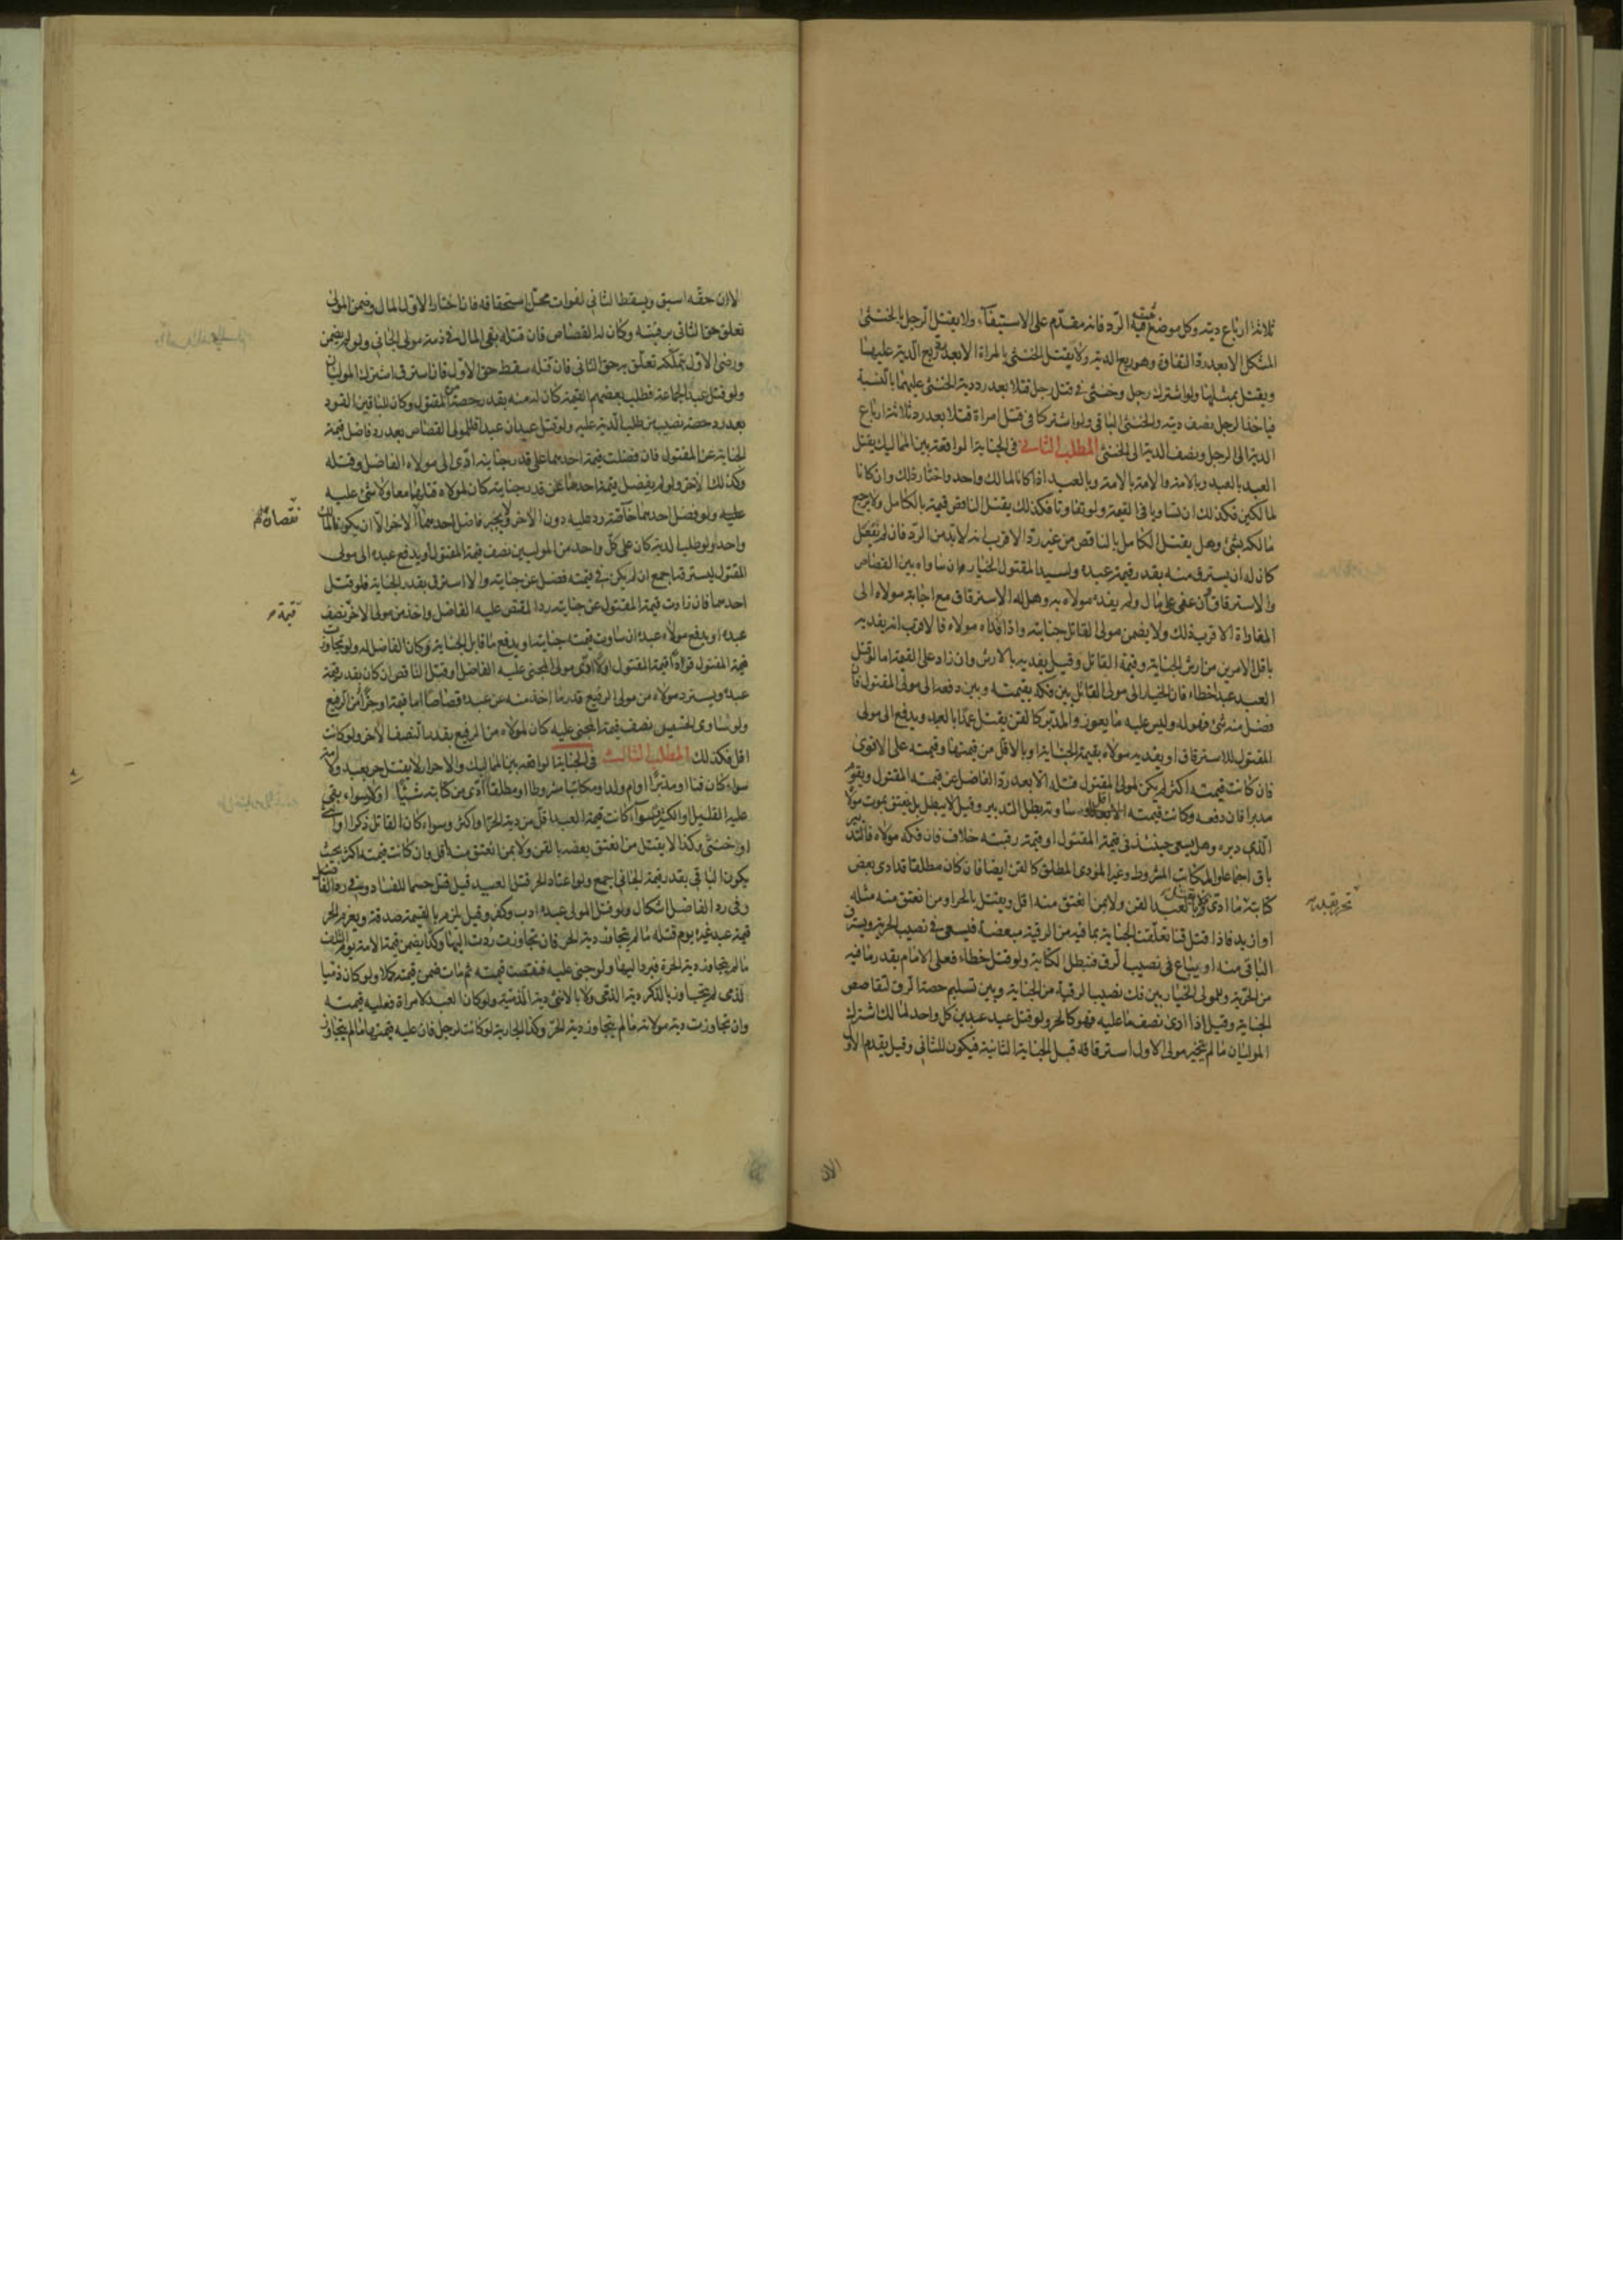 ثلاثة ارباع ديته وكل موضع يثبت فيه الرد فانه مقدم على الاستيفاء ولا يقتل الرجل بالخنثى
المشكل الا بعد رد التفاوت وهو ربع الدية ولا يقتل الخنثى بالمراة الا بعد ربع الدية عليها
ويقتل بمثلها ولو اشترك رجل وخنثى في قتل رجل قتلا بعد رد دية الخنثى عليهما بالنسبة
فياخذ الرجل نصف ديته والخنثى الباقي ولو اشتركا في قتل امراة قتلا بعد رد ثلاثة ارباع
الدية الى الرجل ونصف الدية الى الخنثى المطلب الثاني في الجناية الواقعة بين المماليك يقتل
العبد بالعبد وبالامة والامة بالامة وبالعبد اذا كانا لمالك واحد واختار ذلك وان كانا
لمالكين فكذلك ان تساويا في القيمة ولو تفاوتا فكذلك يقتل الناقص قيمة بالكامل ولا يرجع
مالكه بشئ وهل يقتل الكامل بالناقص من غير رد الاقرب انه لا بد من الرد فان لم يفعل
كان له ان يسترق منه بقدر قيمة عبده ولسيد المقتول الخيار ان ساواه بين القصاص
والاسترقاق فان عفى على مال ولم يفده مولاه به وهل له الاسترقاق مع اجابة مولاه الى
المفاداة الاقرب ذلك ولا يضمن مولى القاتل جنايته واذا افداه مولاه فالاقرب انه يفديه
باقل الامرين من ارش الجناية وقيمة القاتل وقيل يفديه بالارش وان زاد على القيمة اما لو قتل
العبد عبدا خطاء فان الخيار الى مولى القاتل بين فكه بقيمته وبين دفعه الى مولى المقتول فان
فضل منه شئ فهو له وليس عليه ما يعوز والمدبر كالقن يقتل عمدا بالعبد ويدفع الى مولى
المقتول للاسترقاق او يفديه مولاه بقيمة الجناية او بالاقل من قيمتها وقيمته على الاقوى
فان كانت قيمته اكثر لم يكن لمولى المقتول قتله الا بعد رد الفاضل عن قيمته المقتول ويقوم
مدبرا فان دفعه وكانت قيمته اقل او ساوته بطل التدبير وقيل لا يبطل بل ينعتق بموت مولاه
الذي دبره وهل يسعى حينئذ في قيمة المقتول او قيمة رقبته خلاف فان فكه مولاه فالتدبير
باق اجماعا والمكاتب المشروط وغير المؤدى المطلق كالقن ايضا فان كان مطلقا قد ادى بعض
كتابته ما ادى لعبد القن ولا بمن انعتق منه اقل ويقتل بالحر او من انعتق منه مثله
تحرر بقدره
او ازيد فاذا قتل قنا تعلقت الجناية بما فيه من الرقية مبعضة فيسعى في نصيب الحرية ويسترق
الباقي منه او يباع في نصيب الرق فتبطل الكتابة ولو قتل خطاء فعلى الامام بقدر ما فيه
من الحرية وللمولى الخيار بين فك نصيب الرقية من الجناية وبين تسليم حصة الرق لتقاص
الجناية وقيل اذا ادى نصف ما عليه فهو كالحر ولو قتل عبد عبدين كل واحد لمالك اشترك
الموليان ما لم يختر مولى الاول استرقاقه قبل الجناية الثانية فيكون للثاني وقيل يقدم الاول
الان
لان حقه اسبق ويسقط الثاني لفوات محل استحقاقه فان اختار الاول المال وضمن المولى
تعلق حق الثاني برقبته وكان له القصاص فان قتله بقى المال في ذمة مولى الجاني ولو لم يضمن
ورضى الاول بتملكه تعلق به حق الثاني فان قتله سقط حق الاول فان استرق اشترك الموليان
ولو قتل عبدا لجماعة فطلب بعضهم القيمة كان له منه بقدر حصته من المقتول وكان للباقين القود
بعد رد حصة نصيب من طلب الدية عليه ولو قتل عبدان عبدا فللمولى القصاص بعد رد فاضل قيمة
الجناية عن المقتول فان فضلت قيمة احدهما على قدر جنايته ادى الى مولاه الفاضل وقتله
وكذلك الاخر ولو لم يفضل قيمة احدهما عن قدر جنايته كان لمولاه قتلهما معا ولا شئ عليه
عليه ولو فضل احدهما خاصة رد عليه دون الاخر ولا يجبر فاضل احدهما الاخر الا ان يكونا لمالك
نقصان
واحد ولو طلب الدية كان على كل واحد من الموليين نصف قيمة المقتول او يدفع عبده الى مولى
المقتول ليسترقه اجمع ان لم يكن في قيمته فضل عن جنايته والا استرق بقدر الجناية فلو قتل
احدهما فان زادت قيمة المقتول عن جنايته رد المقتص عليه الفاضل واخذ من مولى الاخر نصف
قيمة
عبده او يدفع مولاه عبده ان ساوت قيمته جنايته او يدفع ما قابل الجناية وكان الفاضل له ولو تجاوزت
عبده ويسترد مولاه من مولى الرفيع قدر ما اخذ منه عن عبده قصاصا اما قيمة او جزءا من الرفيع
ولو تساوى الخسيس نصف قيمة المجنى عليه كان لمولاه من الرفيع بقدر النصف الاخر ولو كانت
اقل فكذلك المطلب الثالث في الجناية الواقعة بين المماليك والاحرار لا يقتل حر بعبد ولا امة
سواء كان قنا او مدبرا او ام ولد او مكاتبا مشروطا او مطلقا ادى من كتابته شيئا او لا سواء بقي
عليه القليل او الكثير وسواء كانت قيمة العبد اقل من دية الحر او اكثر وسواء كان القاتل ذكرا او انثى
او خنثى وكذا لا يقتل من انعتق بعضه بالقن ولا بمن انعتق منه اقل وان كانت قيمته اكثر بحيث
يكون الباقي بقدر قيمة الجاني اجمع ولو اعتاد الحر قتل العبيد قيل قتل حسما للفساد
وفي رد الفاضل اشكال ولو قتل المولى عبده ادب وكفر وقيل يلزم بالقيمة صدقة ويغرم الحر
قيمة عبد غيره يوم قتله ما لم يتجاوز دية الحر فان تجاوزت ردت اليها وكذا يضمن قيمة الامة يوم التلف
ما لم يتجاوز دية الحرة فيرد اليها ولو جنى عليه فنقصت قيمته ثم مات ضمن قيمته كملا ولو كان ذميا
لذمي لم يتجاوز بالذكر دية الذمي ولا بالانثى دية الذمية ولو كان العبد لامراة فعليه قيمته
وان تجاوزت دية مولاته ما لم يتجاوز دية الحر وكذا الجارية لو كانت لرجل فان عليه قيمتها ما لم يتجاوز